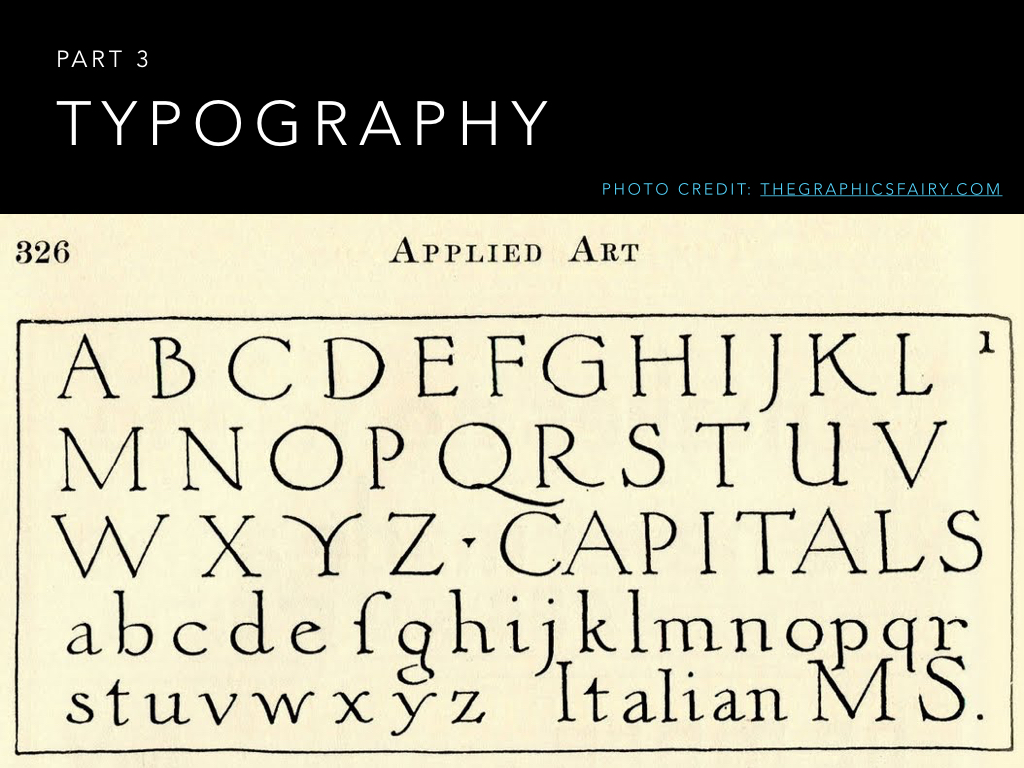 PART 3
TYPOGRAPHY
PHOTO CREDIT: THEGRAPHICSFAIRY.COM
326 APPLIED ART
A B C D E F G H I J K L 1
M N O P Q R S T U V
W X Y Z · CAPITALS
a b c d e f g h i j k l m n o p q r
s t u v w x y z Italian MS.